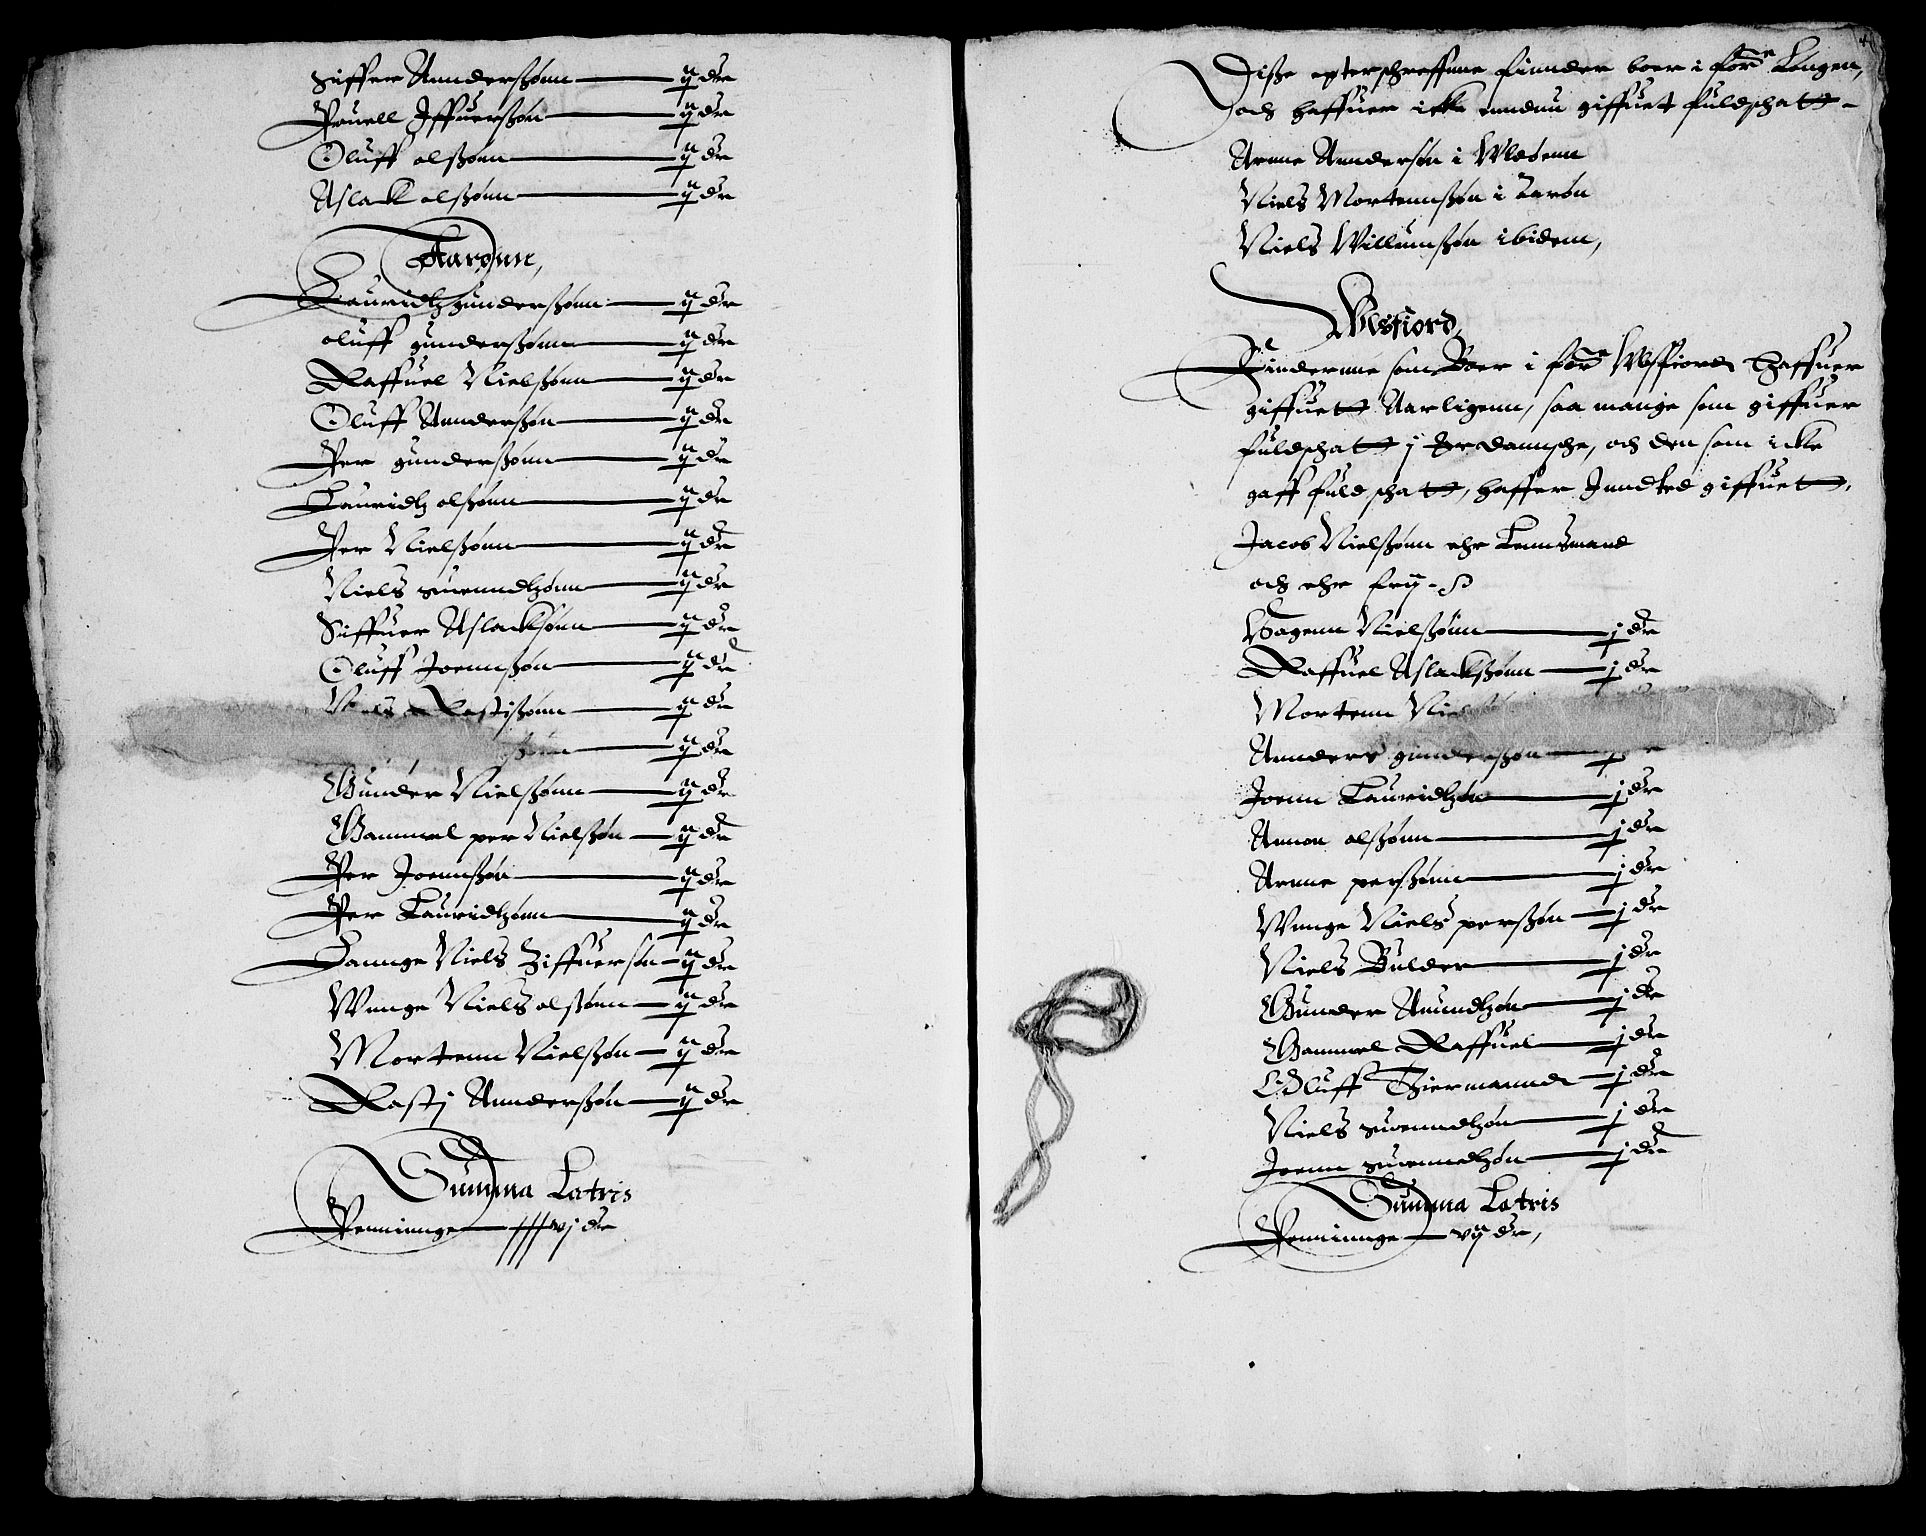 Siffuer Anndersßønn ij dr
Pouell Iffuersßøn ij dr
Oluff olßønn ij dr
Aslack olßønn ij dr
Tarøunn,
Lauridtz gundersßønn ij dr
oluff gundersßønn ij dr
Raffuel Nielßønn ij dr
Oluff Anndersßøn ij dr
Per gundersßønn ij dr
Lauridtz olßønn ij dr
Per Nielßønn ij dr
Niels suenndtzønn ij dr
Siffuer Aslacksønn ij dr
Oluff Joennßøn ij dr
Niels Rastißønn ij dr
ßønn ij dr
Gunder Nielßønn ij dr
Gammel per Nielßøn ij dr
Per Joennßøn ij dr
Per Lauridtzønn ij dr
Lannge Niels Ziffuersøn ij dr
Wnnge Niels olßønn ij dr
Mortenn Nielßøn ij dr
Rastj Anndersßøn ij dr
Summa Latris
Penninnge vj dr
Diße epterschreffne finnder boer i forne Longen,
och haffuer icke enndnu giffuet fuldschatt
Arnne Anndersøn i Wløenn
Niels Mortennßøn i Tarøn
Niels Willumßøn ibidem,
Wlsfiord,
Finderne som Boer i forne Wlsfiord haffuer
giffuett Aarligenn, saa mange som giffuer
fuldschatt j Ør dannsche, och den som icke
gaff fuld schatt, haffer Inndted giffuett,
Jacob Nielßønn ehr Lennsmand
och ehr frij
Bagenn Nielßønn j dr
Raffuel Aslackßønn j dr
Mortenn
Annders gundersßøn
Joenn Lauridtzøn j dr
Amon olßønn j dr
Arnne perßønn j dr
Wnnge Niels perßøn j dr
Niels Bulder j dr
Gunder Amundtzøn j dr
Gammel Raffuel j dr
Oluff Thiermannd j dr
Niels suenndtzøn j dr
Joenn suenndtzøn j dr
Summa Latris
Penninnge vij dr,